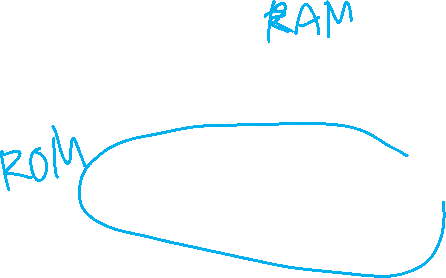 RAM
ROM